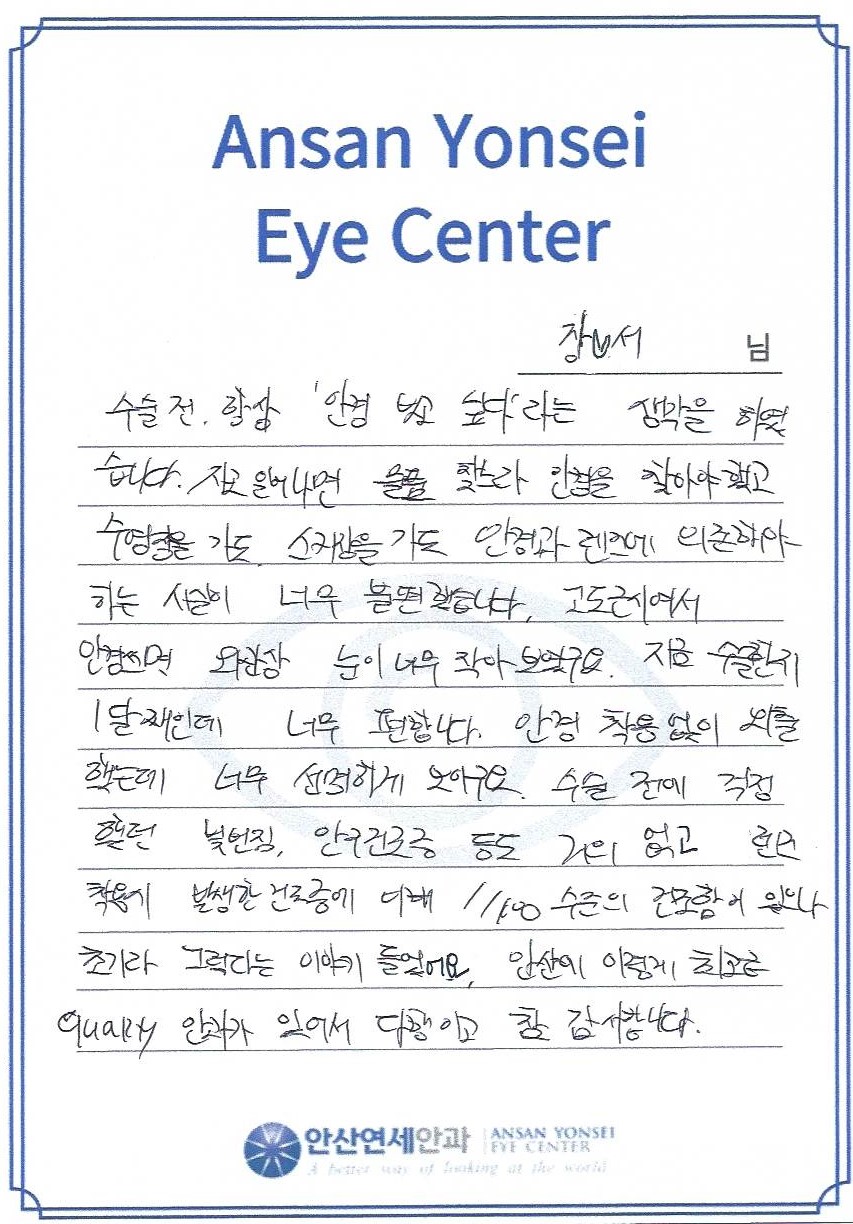 Ansan Yonsei
Eye Center
장♥서 님
수술 전. 항상 '안경 벗고 싶다'라는 생각을 하였
습니다. 자고 일어나면 물품 찾느라 안경을 찾아야 했고
수영장을 가도 스키장을 가도 안경과 렌즈에 의존해야
하는 사실이 너무 불편했습니다. 고도근시여서
안경쓰면 외관상 눈이 너무 작아 보였구요. 지금 수술한지
1달째인데 너무 편합니다. 안경 착용 없이 외출
했는데 너무 선명하게 보이구요. 수술 전에 걱정
했던 빛번짐, 안구건조증 등도 거의 없고 렌즈
착용시 발생한 건조증에 비해 1/100 수준의 건조함이 있으나
초기라 그렇다는 이야기 들었어요, 안산에 이렇게 최고급
quality 안과가 있어서 다행이고 참 감사합니다.
안산연세안과 ANSAN YONSEI
EYE CENTER
A better way of looking at the world